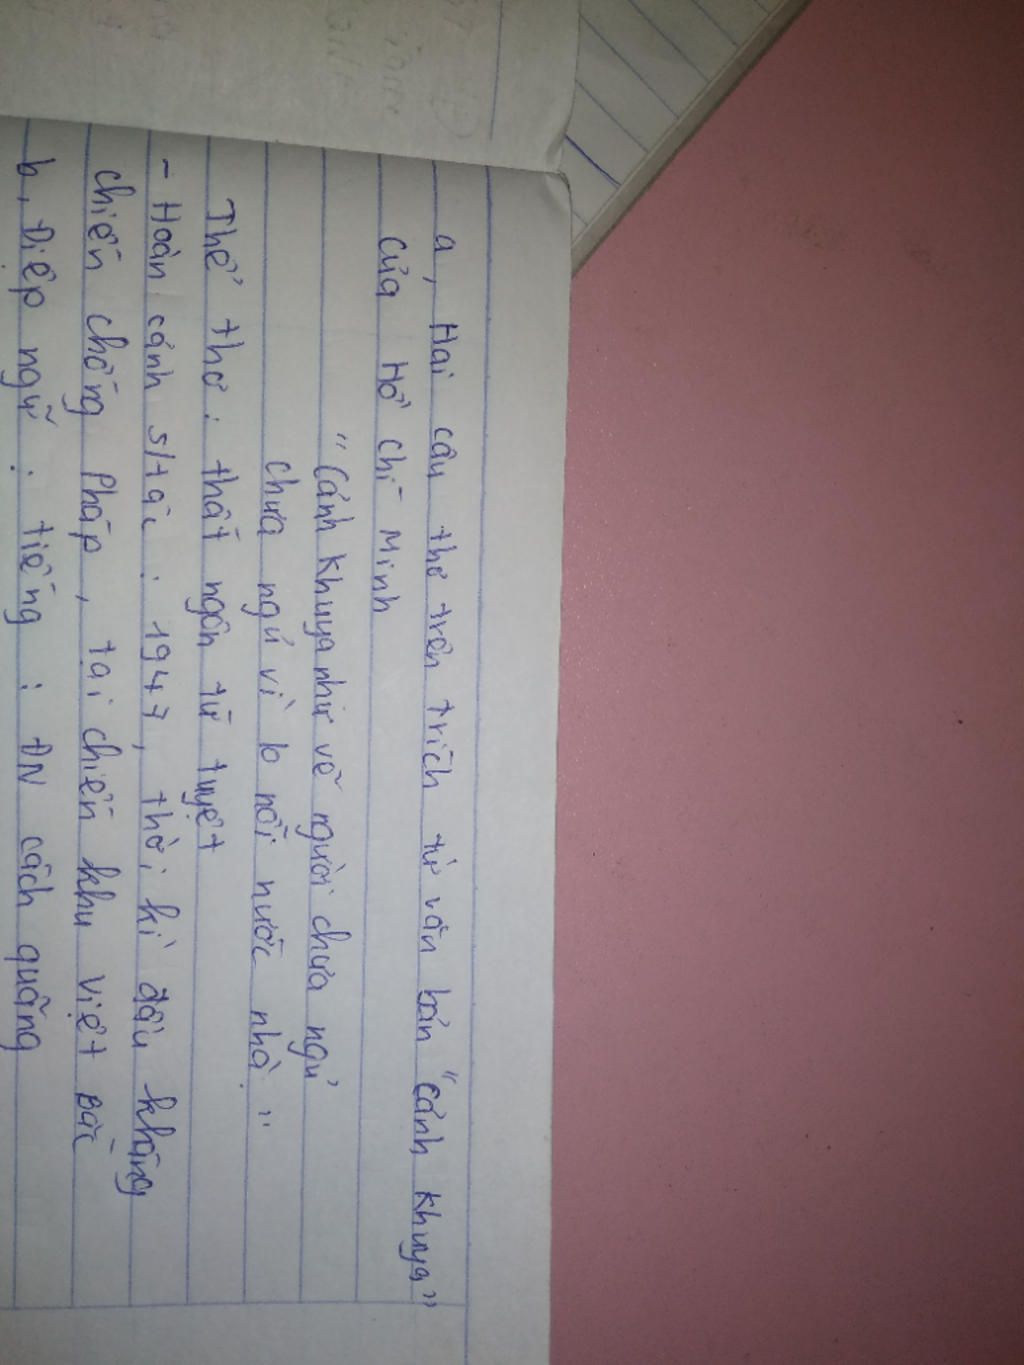 a, Hai câu thơ trên trích từ văn bản "cảnh khuya"
của Hồ Chí Minh
"Cảnh khuya như vẽ người chưa ngủ
chưa ngủ vì lo nỗi nước nhà."
Thể thơ: thất ngôn tứ tuyệt
- Hoàn cảnh s/tác: 1947, thời kì đầu kháng
chiến chống Pháp, tại chiến khu việt Bắc
b, Điệp ngữ: tiếng: ĐN cách quãng